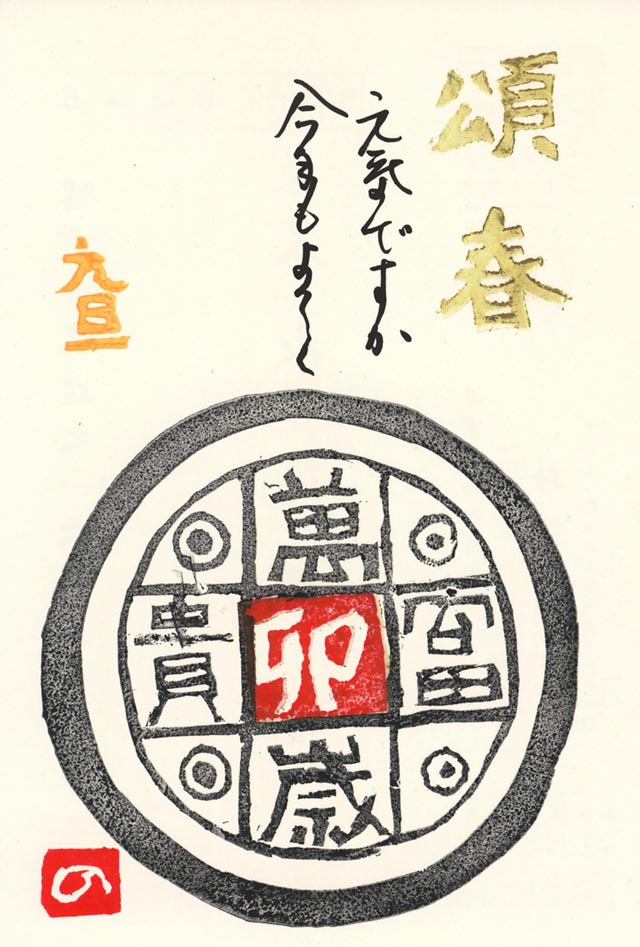 頌春
元気ですか
今年もよろしく
元旦
萬
富
卯
貴
歳
の